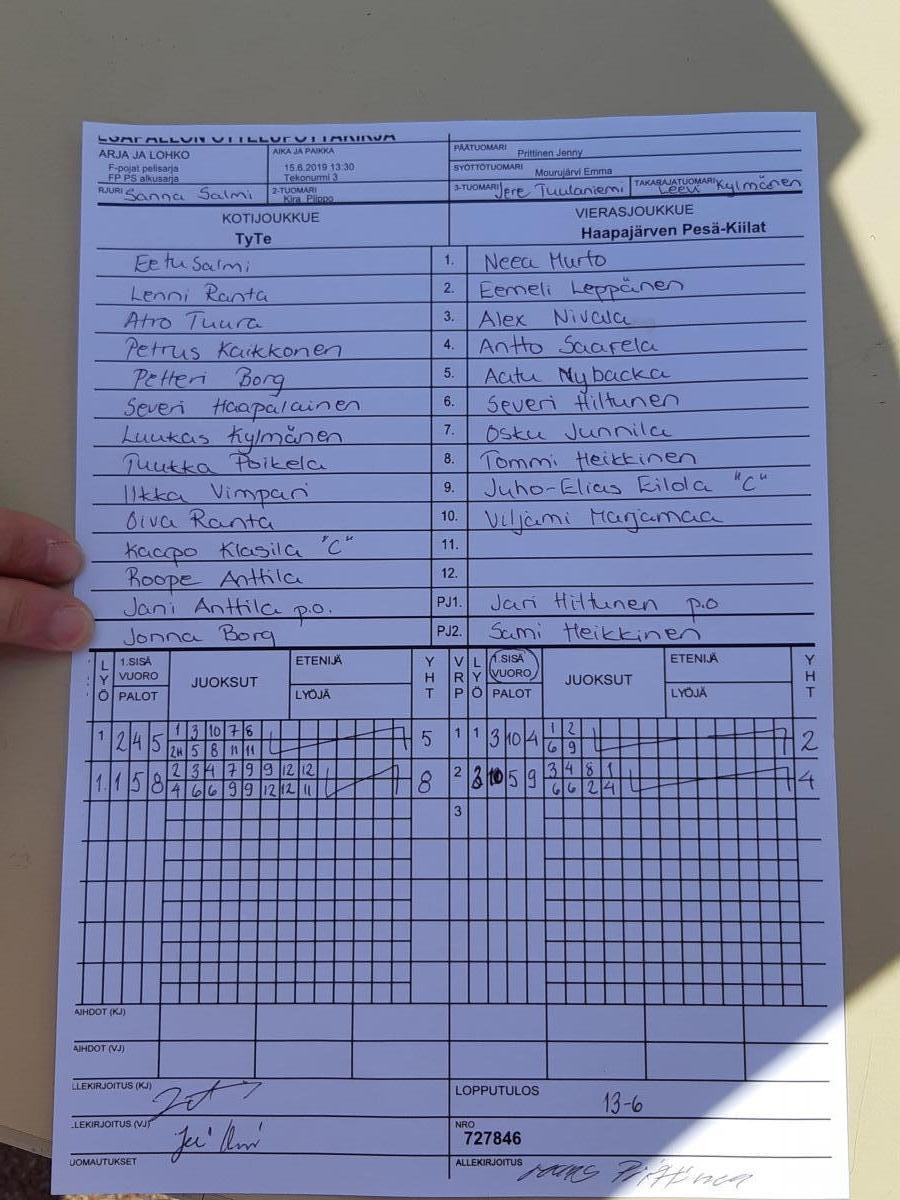 PESÄPALLON OTTELUPÖYTÄKIRJA
SARJA JA LOHKO
F-pojat pelisarja
FP PS alkusarja
AIKA JA PAIKKA
15.6.2019 13:30
Tekonurmi 3
PÄÄTUOMARI Prittinen Jenny
SYÖTTÖTUOMARI Mourujärvi Emma
RJURI Sanna Salmi
2-TUOMARI
Kira Piippo
3-TUOMARI Jere Tuulaniemi
TAKARAJATUOMARI Leevi Kylmänen
KOTIJOUKKUE
TyTe
VIERASJOUKKUE
Haapajärven Pesä-Kiilat
Eetu Salmi 1. Neea Murto
Lenni Ranta 2. Eemeli Leppänen
Atro Tuura 3. Alex Nivala
Petrus Kaikkonen 4. Antto Saarela
Petteri Borg 5. Aatu Nybacka
Severi Haapalainen 6. Severi Hiltunen
Luukas Kylmänen 7. Osku Junnila
Tuukka Poikela 8. Tommi Heikkinen
Ilkka Vimpari 9. Juho-Elias Eilola "C"
Oiva Ranta 10. Viljami Marjamaa
Kaapo Klasila "C" 11.
Roope Anttila 12.
Jani Anttila p.o. PJ1. Jari Hiltunen p.o
Jonna Borg PJ2. Sami Heikkinen
LYÖ 1.SISÄ VUORO PALOT JUOKSUT ETENIJÄ LYÖJÄ YHT VRP LYÖ 1.SISÄ VUORO PALOT JUOKSUT ETENIJÄ LYÖJÄ YHT
1 2 4 5 1 3 10 7 6 5 1 1 3 10 4 1 2 2
2H 5 8 11 11 6 9
1. 1 5 8 2 3 4 7 9 9 12 12 8 2 3 10 5 9 3 4 8 1 4
4 6 6 9 9 12 12 11 6 6 2 4
3
AIHDOT (KJ)
AIHDOT (VJ)
LLEKIRJOITUS (KJ)
LOPPUTULOS 13-6
LLEKIRJOITUS (VJ)
NRO
727846
UOMAUTUKSET
ALLEKIRJOITUS